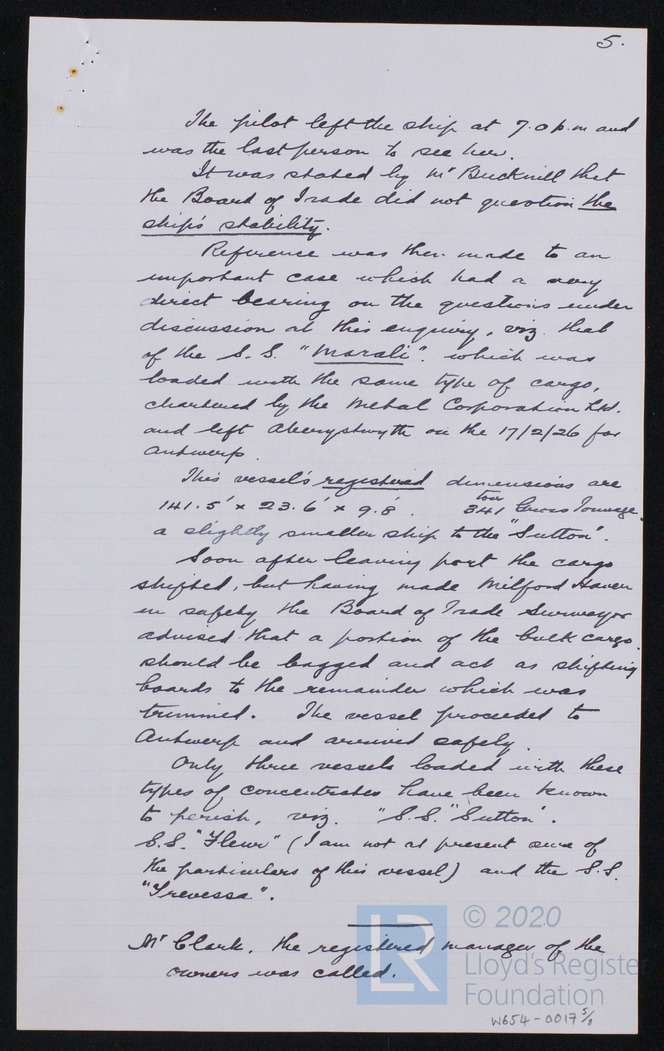 5.
The pilot left the ship at 7.0 p.m and
was the last person to see her.
It was stated by Mr Bucknill that
the Board of Trade did not question the
ship's stability.
Reference was then made to an
important case which had a very
direct bearing on the questions under
discussion at this enquiry, viz. that
of the S.S. "Marali". which was
loaded with the same type of cargo,
chartered by the Metal Corporation Ltd.
and left Aberystwyth on the 17/2/26 for
Antwerp.
This vessel's registered dimensions are
141.5' x 23.6' x 9.8'. 341 tons Gross Tonnage,
a slightly smaller ship to the "Sutton".
Soon after leaving port the cargo
shifted, but having made Milford Haven
in safety the Board of Trade Surveyor
advised that a portion of the bulk cargo
should be bagged and act as shifting
boards to the remainder which was
trimmed. The vessel proceeded to
Antwerp and arrived safely.
Only three vessels loaded with these
types of concentrates have been known
to perish, viz. "S.S." Sutton".
S.S. "Fleur" (I am not at present sure of
the particulars of this vessel) and the S.S.
"Trevessa".
Mr Clark. the registered manager of the
owners was called.
© 2020
LR
Lloyd's Register
Foundation
W654-0017 5/8